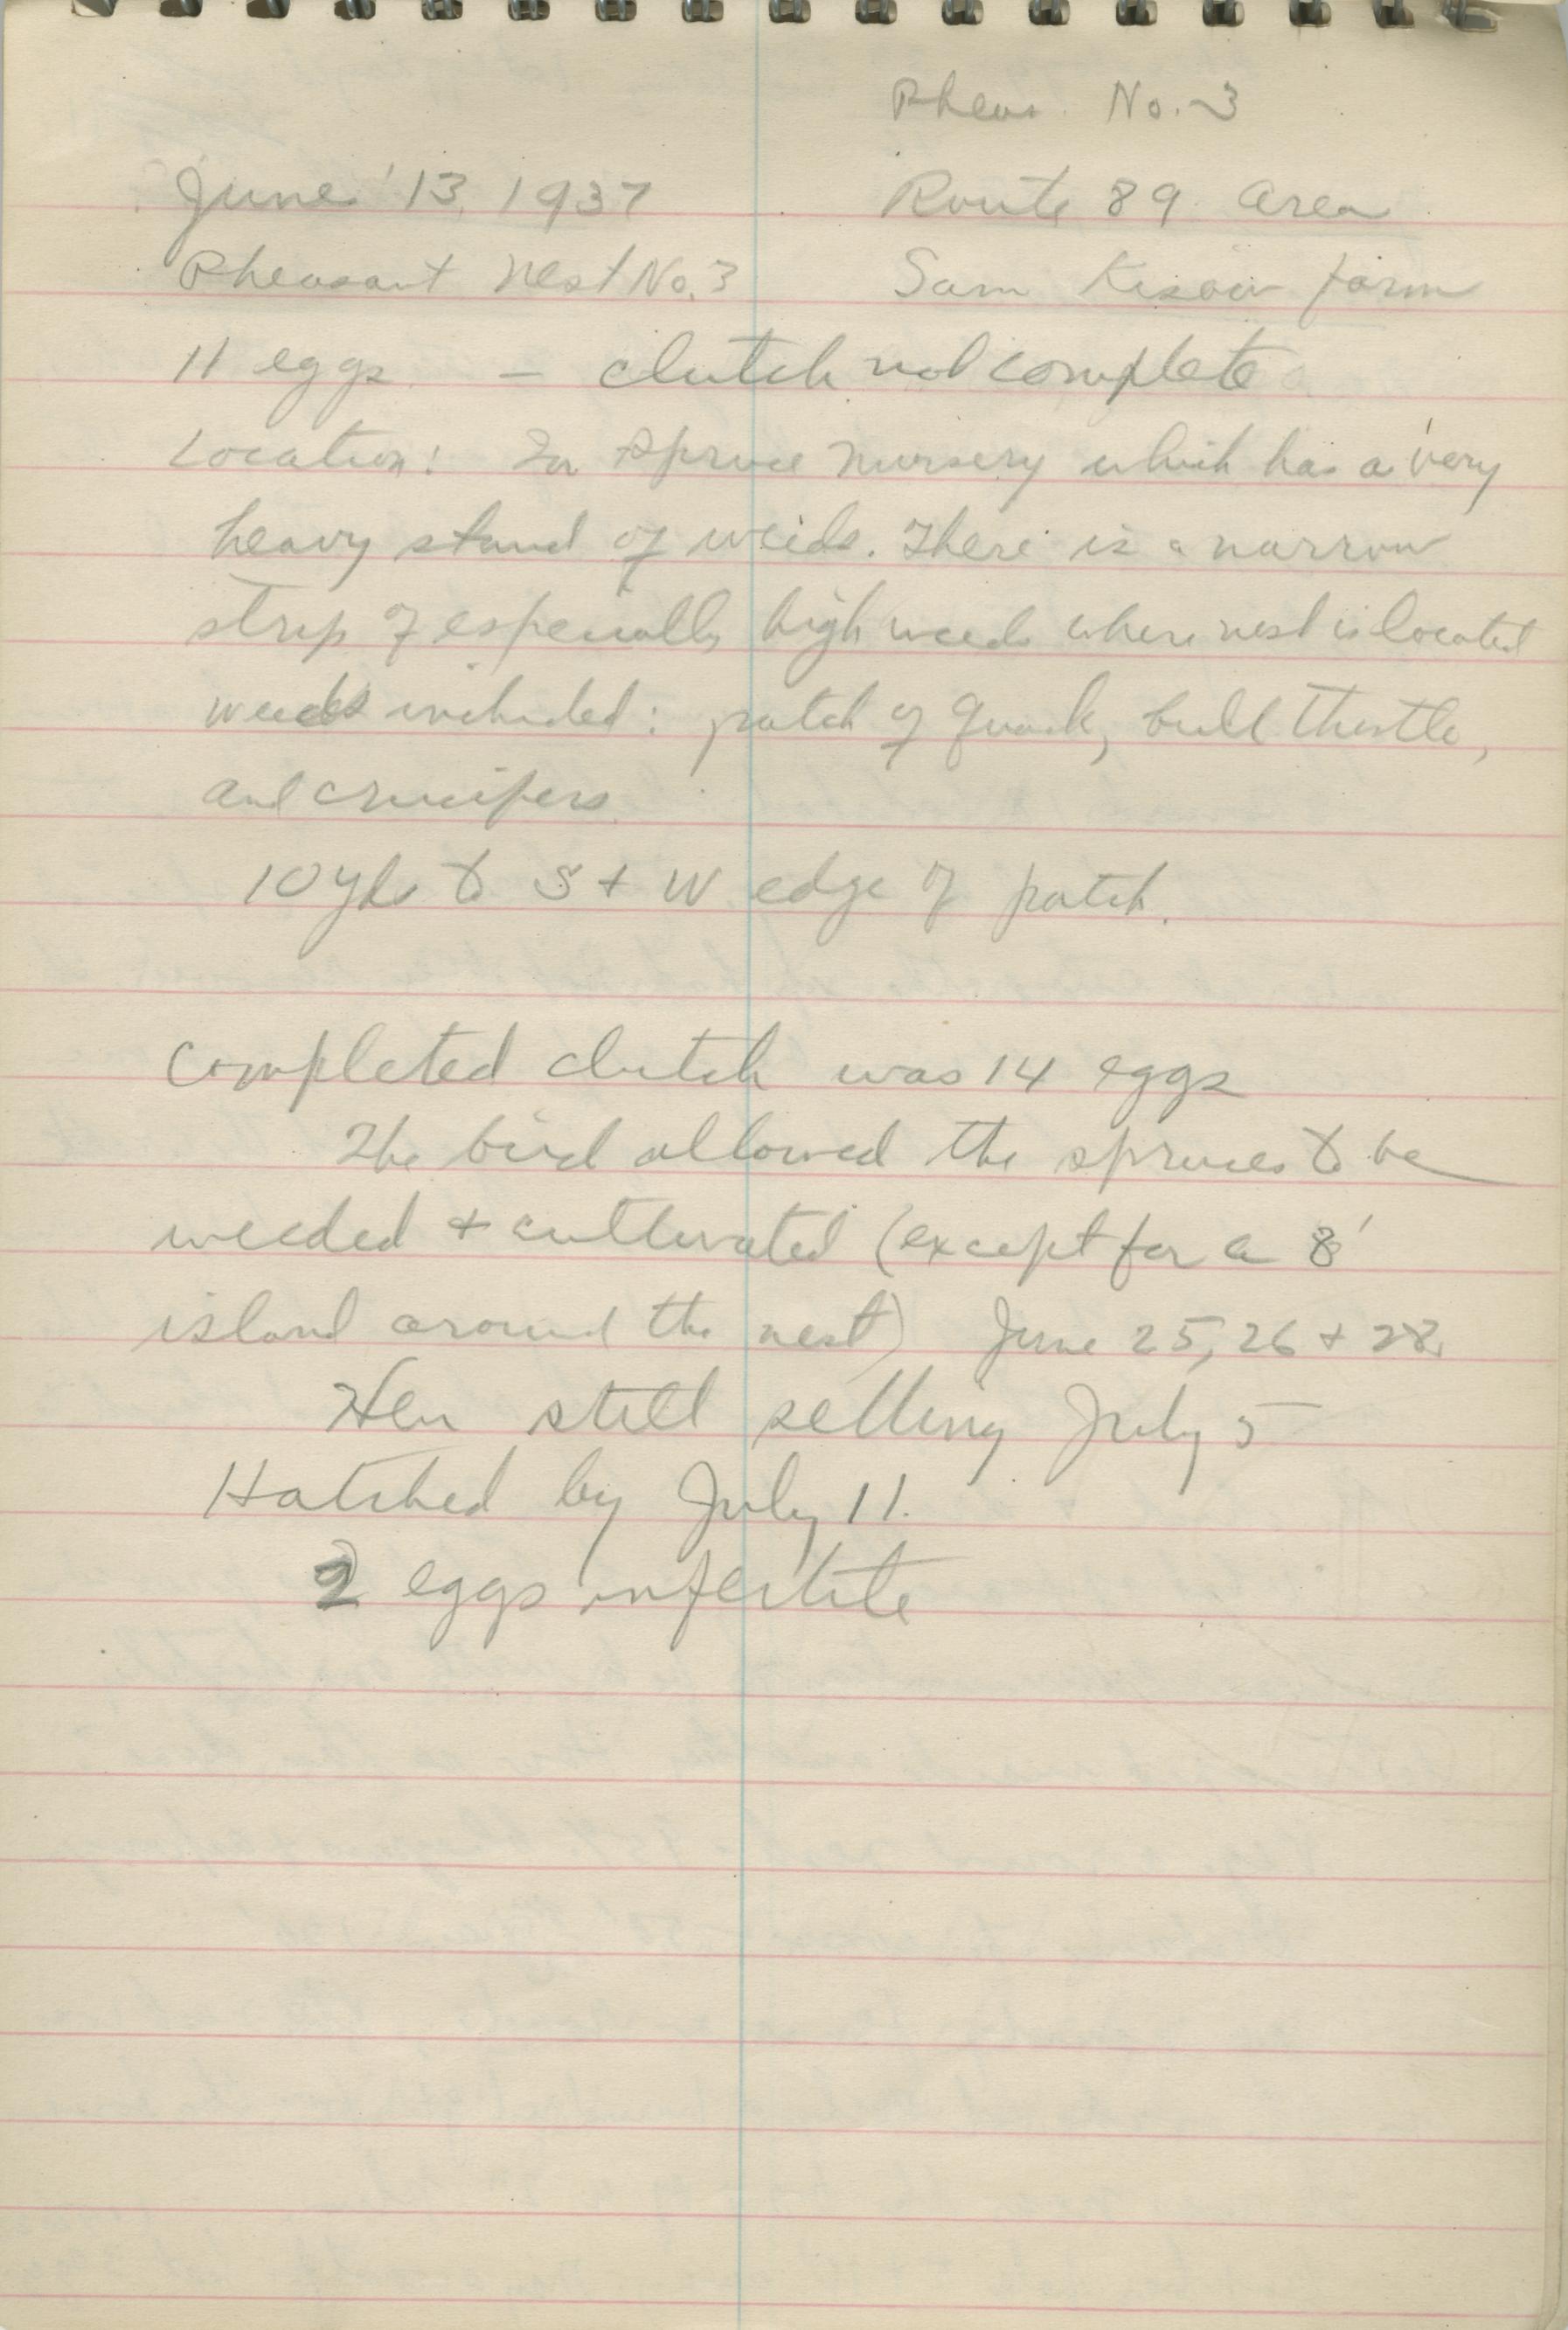 Pheas. No. 3
June 13, 1937 Route 89 area
Pheasant Nest No. 3 Sam farm
11 eggs - clutch not complete
Location: In spruce nursery which has a very
heavy stand of weeds. There is a narrow
strip of especially high weeds where nest is located
weeds included: patch of quack, bull thistle,
and crucifers.
10 yds to S + W edge of patch.
Completed clutch was 14 eggs
The bird allowed the spruces to be
weeded + cultivated (except for a 8'
island around the nest) June 25, 26 + 28.
Hen still setting July 5
Hatched by July 11.
2 eggs infertile